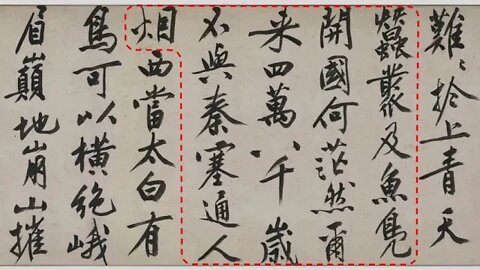 難〻於上青天
蠶叢及魚鳧
開國何茫然爾
来四萬八千歲
不與秦塞通人
烟西當太白有
鳥可以横絶峨
眉巔地崩山摧